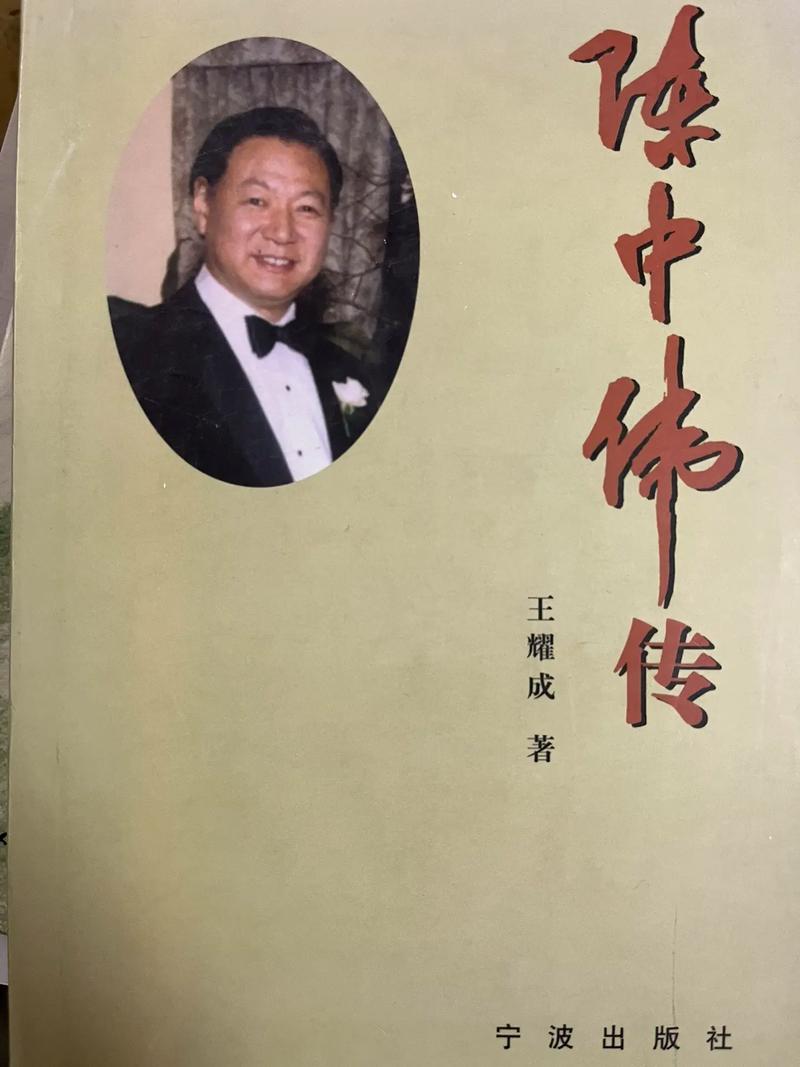 陈中伟传
王耀成 著
宁波出版社